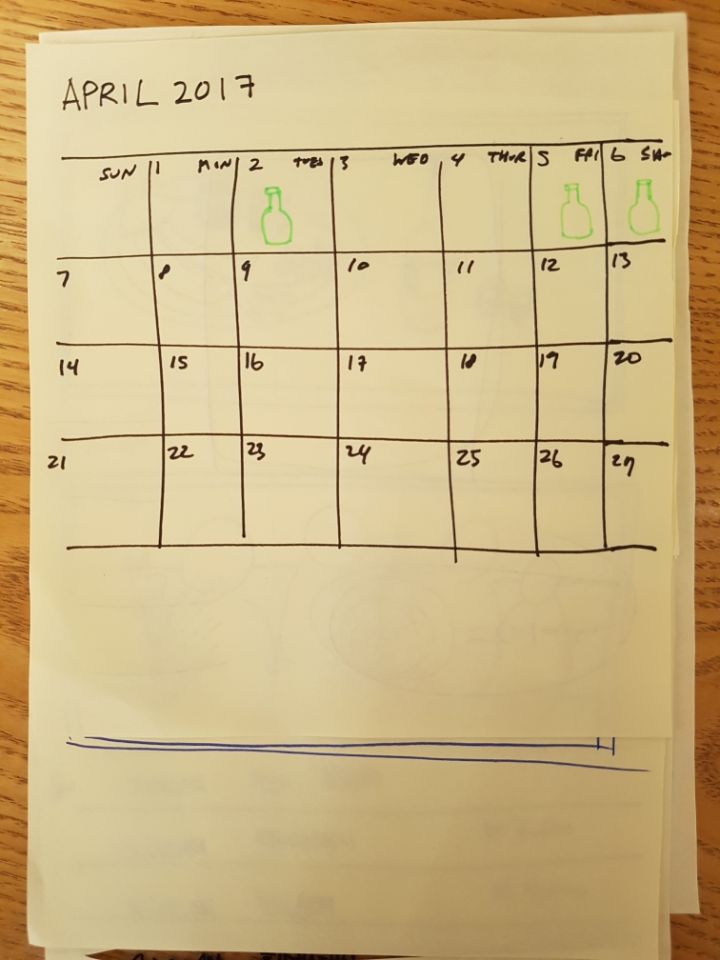 APRIL 2017
SUN 1 MIN 2 TUES 3 WED 4 THUR 5 FRI 6 SAT
7 8 9 10 11 12 13
14 15 16 17 18 19 20
21 22 23 24 25 26 27